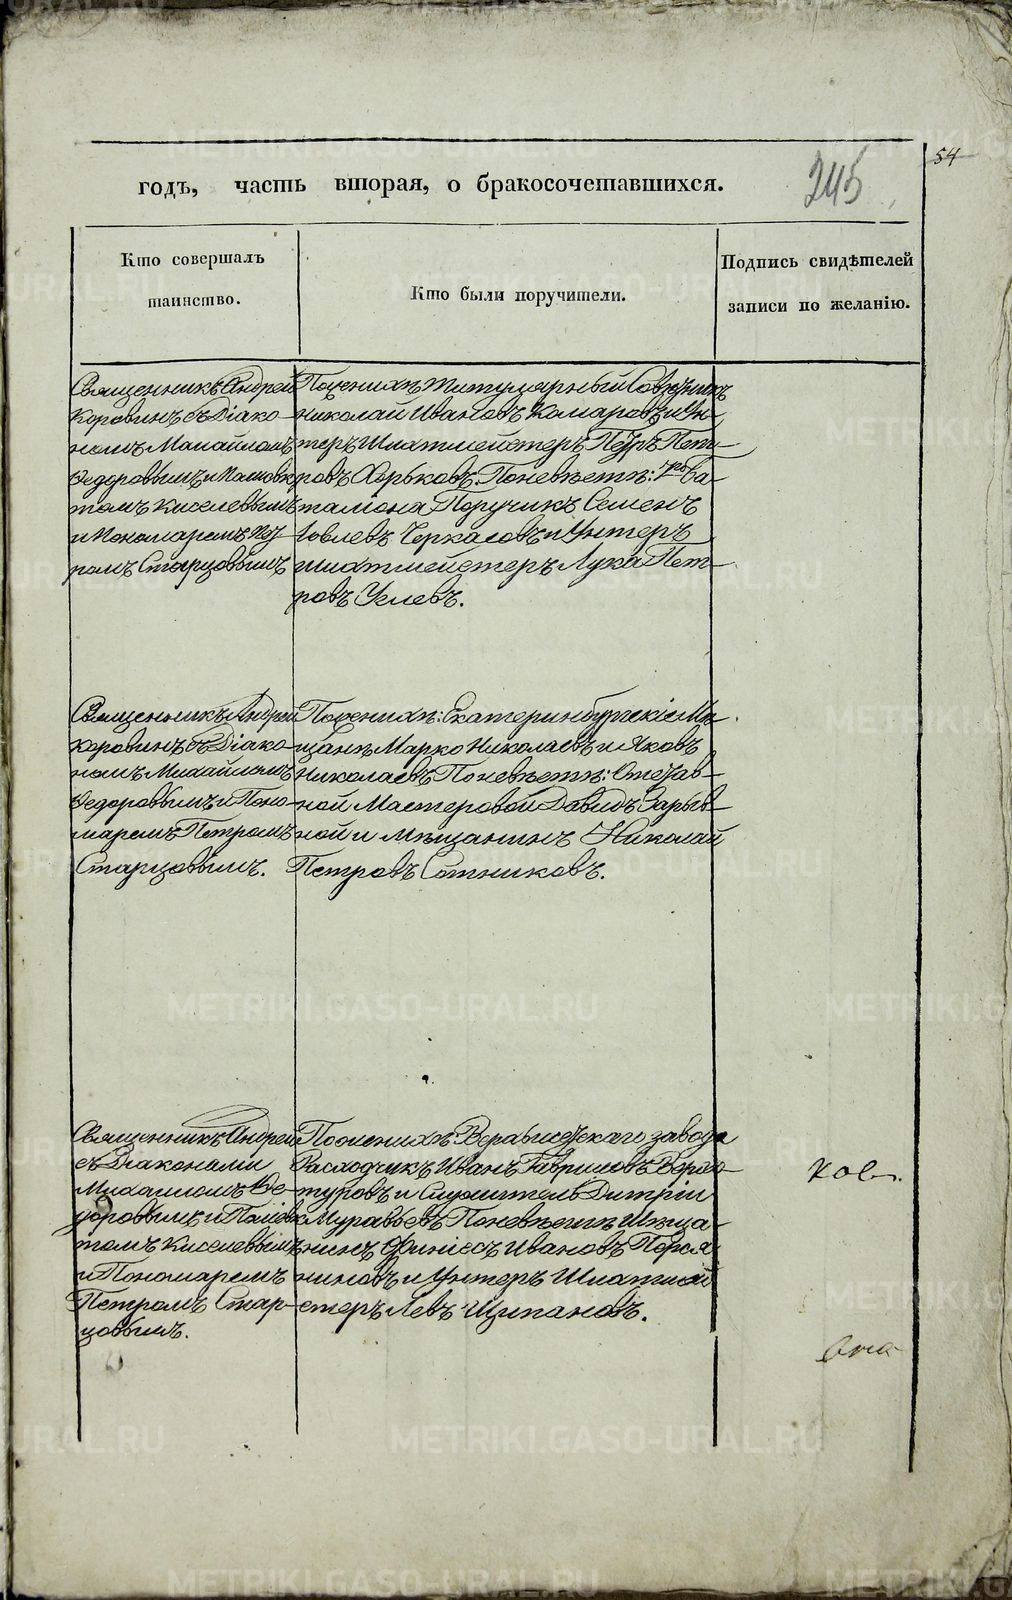 54
245
годъ, часть вторая, о бракосочетавшихся.
Кто совершалъ
таинство.
Кто были поручители.
Подпись свидѣтелей
записи по желанію.
Священникъ Андрей
Коровинъ съ Діако-
номъ Михайломъ
Федоровымъ и
Киселевымъ
и Пономаремъ Пет
ромъ Старцовымъ
По женихѣ Титулярный Совѣтникъ
Николай Ивановъ Комаровъ и Ун-
теръ Шихтмейстеръ Петръ Пет-
ровъ Харьковъ. По невѣстѣ: Ба-
таліона Поручикъ Семенъ
Іовлевъ Черкасовъ и Унтеръ
шихтмейстеръ Лука Пет-
ровъ Углевъ.
Священникъ Андрей
Коровинъ съ Діако-
номъ Михайломъ
Федоровымъ и Поно-
маремъ Петромъ
Старцовымъ.
По женихѣ: Екатеринбургскіе Мѣ
щане Марко Николаевъ и Яковъ
Николаевъ По невѣстѣ: Отстав-
ной Мастеровой Давидъ
и Мѣщанинъ Николай
Петровъ Сотниковъ.
Священникъ Андрей
съ Діаконами
Михаиломъ Фе-
доровымъ и
Киселевымъ
и Пономаремъ
Петромъ Стар-
цовымъ.
По женихѣ: Верхисетскаго завода
Расходчикъ Иванъ Гавриловъ
туровъ и Служитель Дмитрій
Муравьевъ По невѣстѣ Мѣща-
нинъ Ивановъ
ниновъ и Унтеръ Шихтмей
стеръ Левъ Щипановъ.
METRIKI.GASO-URAL.RU